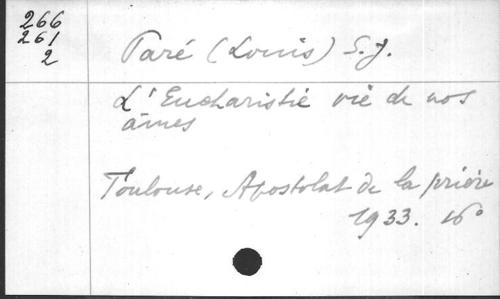 266
261
2
Paré (Louis) S.J.
L'Eucharistie vie de nos
âmes
Toulouse, Apostolat de la prière
1933. 16°